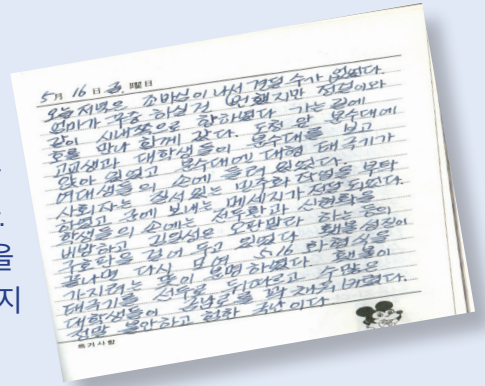 5月 16日 금 曜日
오늘 저녁은 조바심이 나서 견딜 수가 없었다.
엄마가 꾸중 하실 건 뻔했지만 정현이와
같이 시내쪽으로 향하였다. 가는 길에
호를 만나 함께 갔다. 도청 앞 분수대에
고교생과 대학생들이 분수대를 보고
앉아 있었고 분수대에 대형 태극기가
여대생들의 손에 들려 있었다.
사회자는 질서있는 민주화 작업을 부탁
하였고 군에 보내는 메세지가 전달 되었다.
학생들의 손에는 전두환과 신현확을
비방하고 김일성은 오판말라 하는 등의
구호판을 걸어 두고 있었다. 횃불 성진이
끝나면 다시 모여 5/16 화형식을
가지려는 뜻이 분명하였다. 횃불이
태극기를 선두로 뒤따르고 수많은
대학생들이 충남로를 꽉 채워 버렸다.
정말 불안하고 험한 국난이다
특기사항
을
지